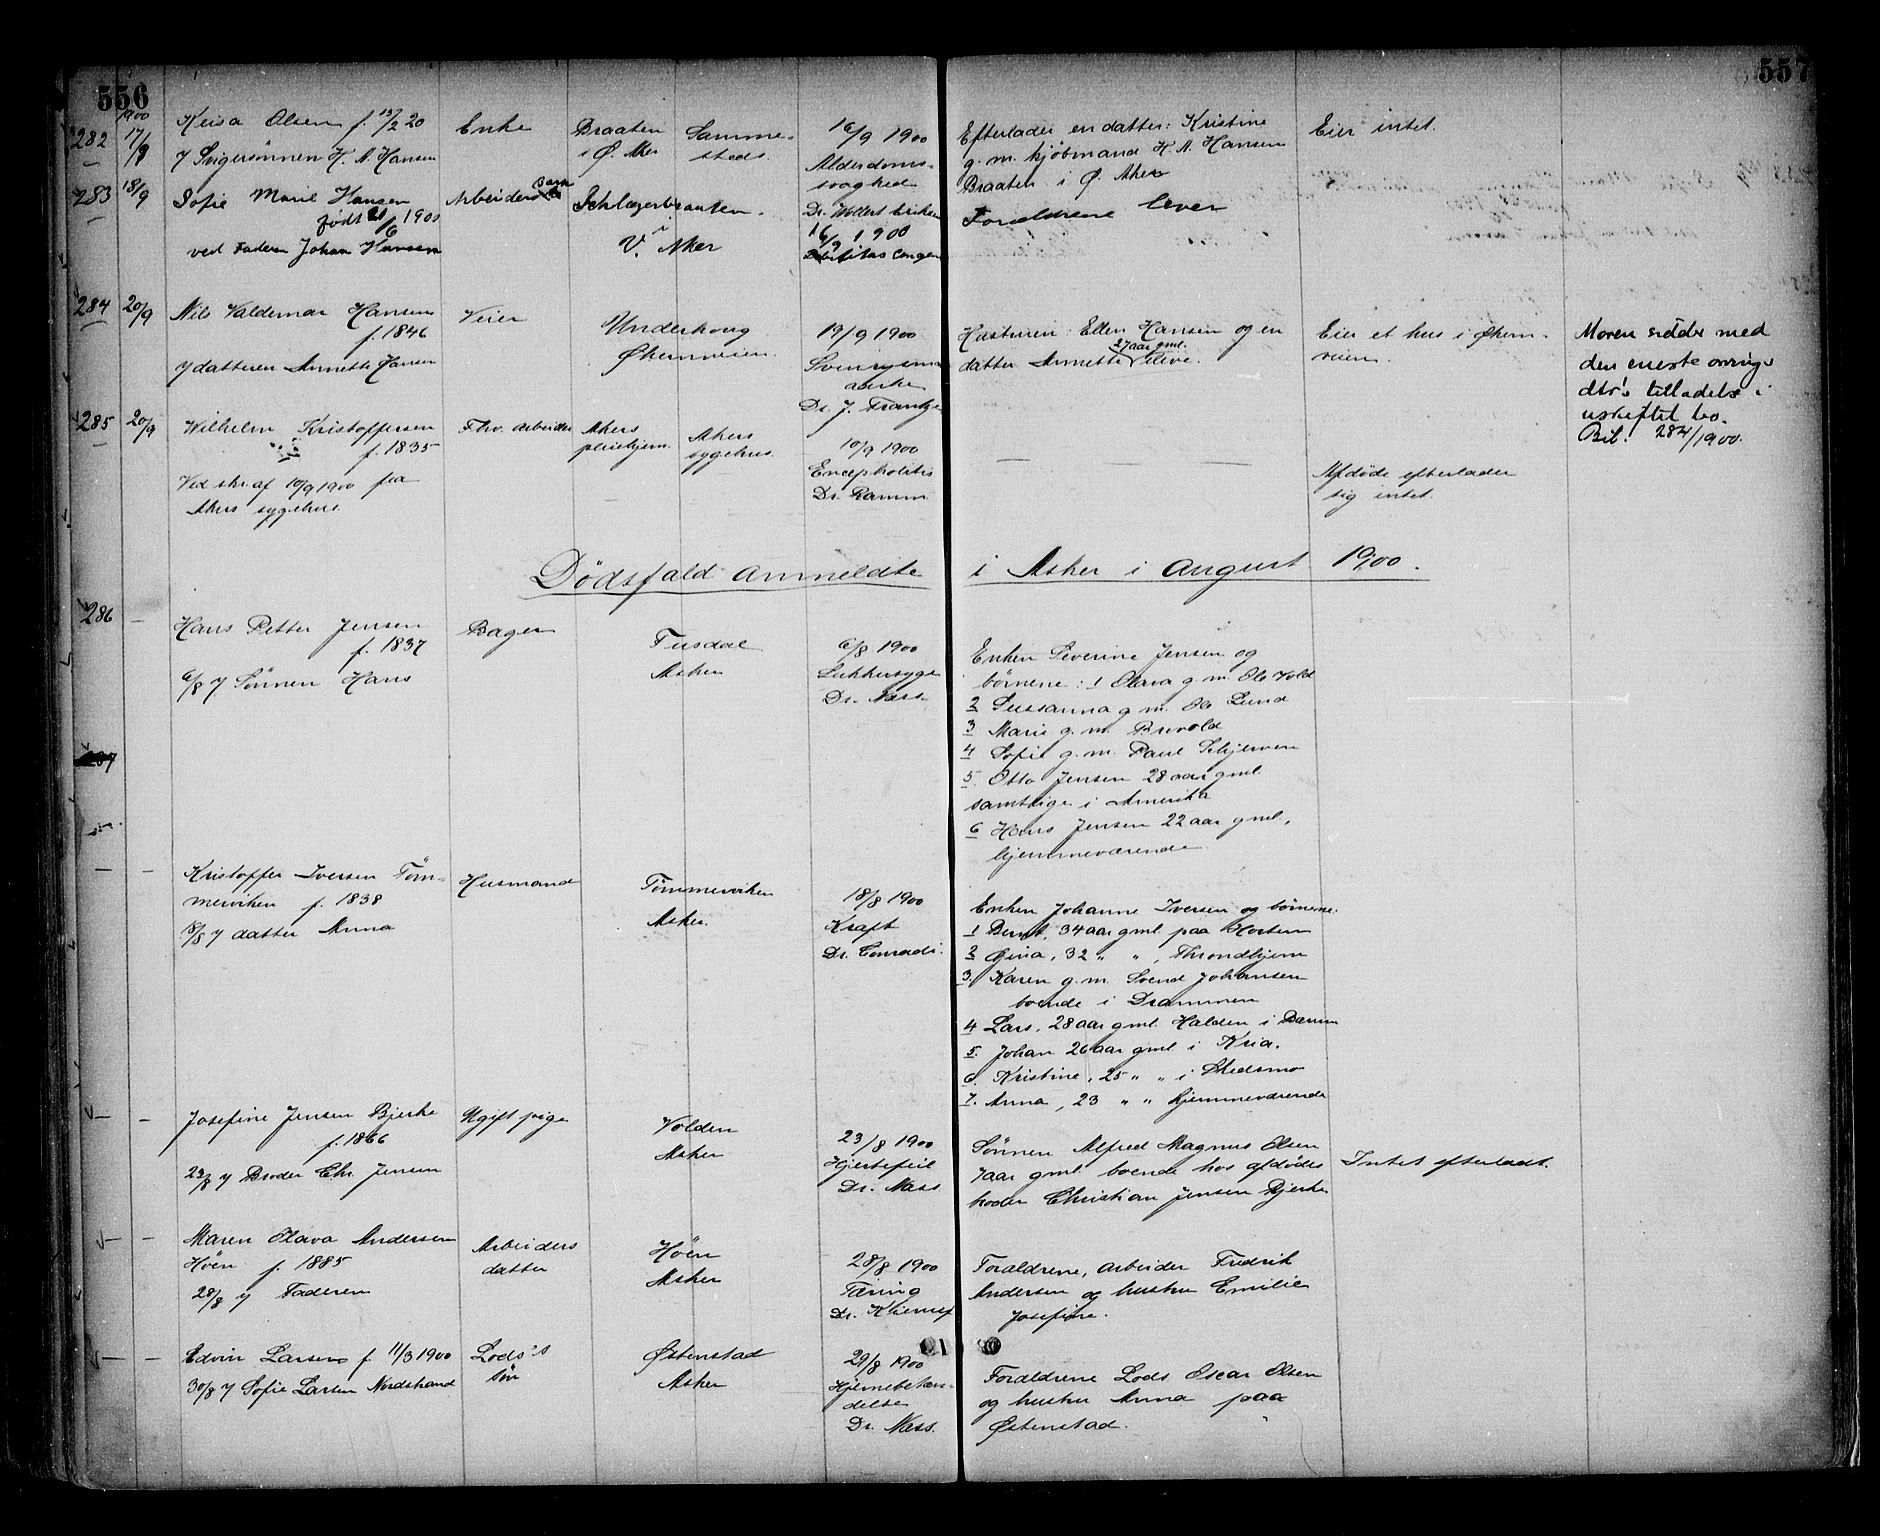 556
557
1900
282 17/9 Keisa Olsen f. 15/2 20 Enke Braaten Samme- 16/9 1900 Efterlader en datter: Kristine Eier intet.
γ Svigersønnen H. A. Hansen i Ø. Aker steds. Alderdoms- g. m. kjøbmand H. A. Hansen
svaghed Braaten i Ø. Aker
283 18/9 Sofie Marie Hansen Arbeiders barn Schlægerbraaten. Dr. Vollert Eriksen Forældrene lever
født 21/6 1900 i 16/9 1900
ved Faderen Johan Hansen V. Aker Debilitas congen
284 20/9 Nils Valdemar Hansen Veier Underhaug 19/9 1900 Hustruen: Ellen Hansen og en Eier et hus i Økern- Moren sidder med
f. 1846 Økernveien. 27 aar gml.
γ datteren Annette Hansen datter Annette i live. veien. den eneste
aarke dtr's tilladelse i
Dr. J. Frantze uskiftet bo.
285 20/9 Wilhelm Kristoffersen Fhv. arbeider Akers Akers 10/9 1900 Bil. 284/1900.
f. 1835 pleiehjem. sygehus. Encephalitis — — — Afdøde efterlader
Ved skr. af 10/9 1900 fra Dr. Ramm. sig intet.
Akers sygehus.
Dødsfald anmeldte i Asker i August 1900.
286 — Hans Petter Jensen Bager Fusdal 6/8 1900 Enken Severine Jensen og
f. 1837 Asker Sukkersyge børnene: 1 Olava g. m. Ole Vold
6/8 γ Sønnen Hans Dr. Næss 2 Sussanna g. m. Ole Lund
3 Marie g. m. Brevold
287 4 Sofie g. m. Paul Schjerven
5. Otto Jensen 28 aar gml.
samtlige i Amerika
6 Hans Jensen 22 aar gml,
hjemmeværende
— — Kristoffer Iversen Tøm- Husmand Tømmerviken 18/8 1900 Enken Johanne Iversen og børnene:
merviken f. 1838 Asker. Kræft 1 Bernt, 34 aar gml paa Horten
18/8 γ datter Anna Dr. Conradi. 2 Gina, 32 " ", Throndhjem
3. Karen g. m. Svend Johansen
boende i Drammen
4 Lars, 28 aar gml. Halden i Bærum
5. Johan 26 aar gml i Kria.
6. Kristine, 25 " " i Skedsmo
7. Anna, 23 " " hjemmeværende
— — Josefine Jensen Bjerke Ugift pige Volden 23/8 1900 Sønnen Alfred Magnus Olsen
f. 1866 Asker Hjertefeil 7 aar gml. boende hos afdødes Intet efterladt.
23/8 γ Broder Chr. Jensen Dr. Næss broder Christian Jensen Bjerke
— — Maren Olava Andersen Arbeiders Høen 28/8 1900 Forældrene, arbeider Fredrik
Høen f. 1885 datter Asker Tæring Andersen og hustru Emilie
28/8 γ Faderen Josefine.
— — Edvin Larsen f. 11/3 1900 Lods's Østenstad 29/8 1900 Forældrene Lods Oscar Olsen
30/8 γ Sofie Larsen Nordstrand søn Asker Hjernebetæn- og hustru Anna paa
delse Østenstad.
Dr. Næss.